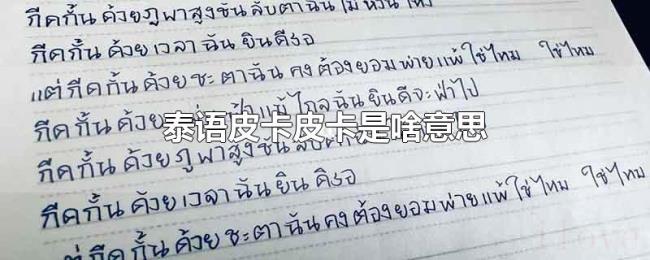 กีดกั้น ด้วยภูพาสูงชัน ลับตาฉัน ไม่ หวั่น ไหว
กีดกั้น ด้วยเวลา ฉัน ยินดีรอ
แต่กีดกั้น ด้วยชะตาฉัน คงต้องยอมพ่ายแพ้ใช่ไหม ใช่ไหม
กีดกั้น ด้วย ฟ้าแม้ไกลฉันยินดีจะฝ่าไป
泰语皮卡皮卡是啥意思
กีดกั้น ด้วยภูพาสูงชัน
กีดกั้น ด้วยเวลาฉันยินดีรอ
แต่กีดกั้น ด้วยชะตาฉันคงต้องยอมพ่ายแพ้ใช่ไหม ใช่ไหม